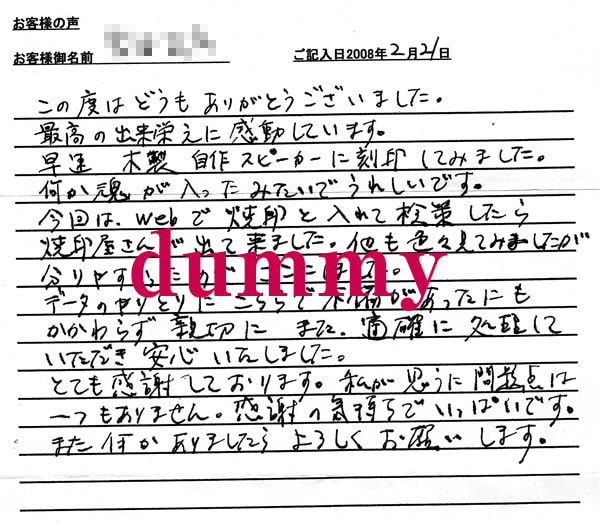 お客様の声
お客様御名前
ご記入日2008年2月21日
この度はどうもありがとうございました。
最高の出来栄えに感動しています。
早速 木製 自作スピーカーに刻印してみました。
何か魂が入ったみたいでうれしいです。
今回は、Webで焼印と入れて検策したら
焼印屋さんが出て来ました。他も色々見てみましたが
分りやすかったのでここにしました。
データのやりとりにこちらで不備があったにも
かかわらず親切に また、適確に処理して
いただき安心いたしました。
とても感謝しております。私が思うに問題点は
一つもありません。感謝の気持ちでいっぱいです。
また何かありましたらよろしくお願いします。
dummy